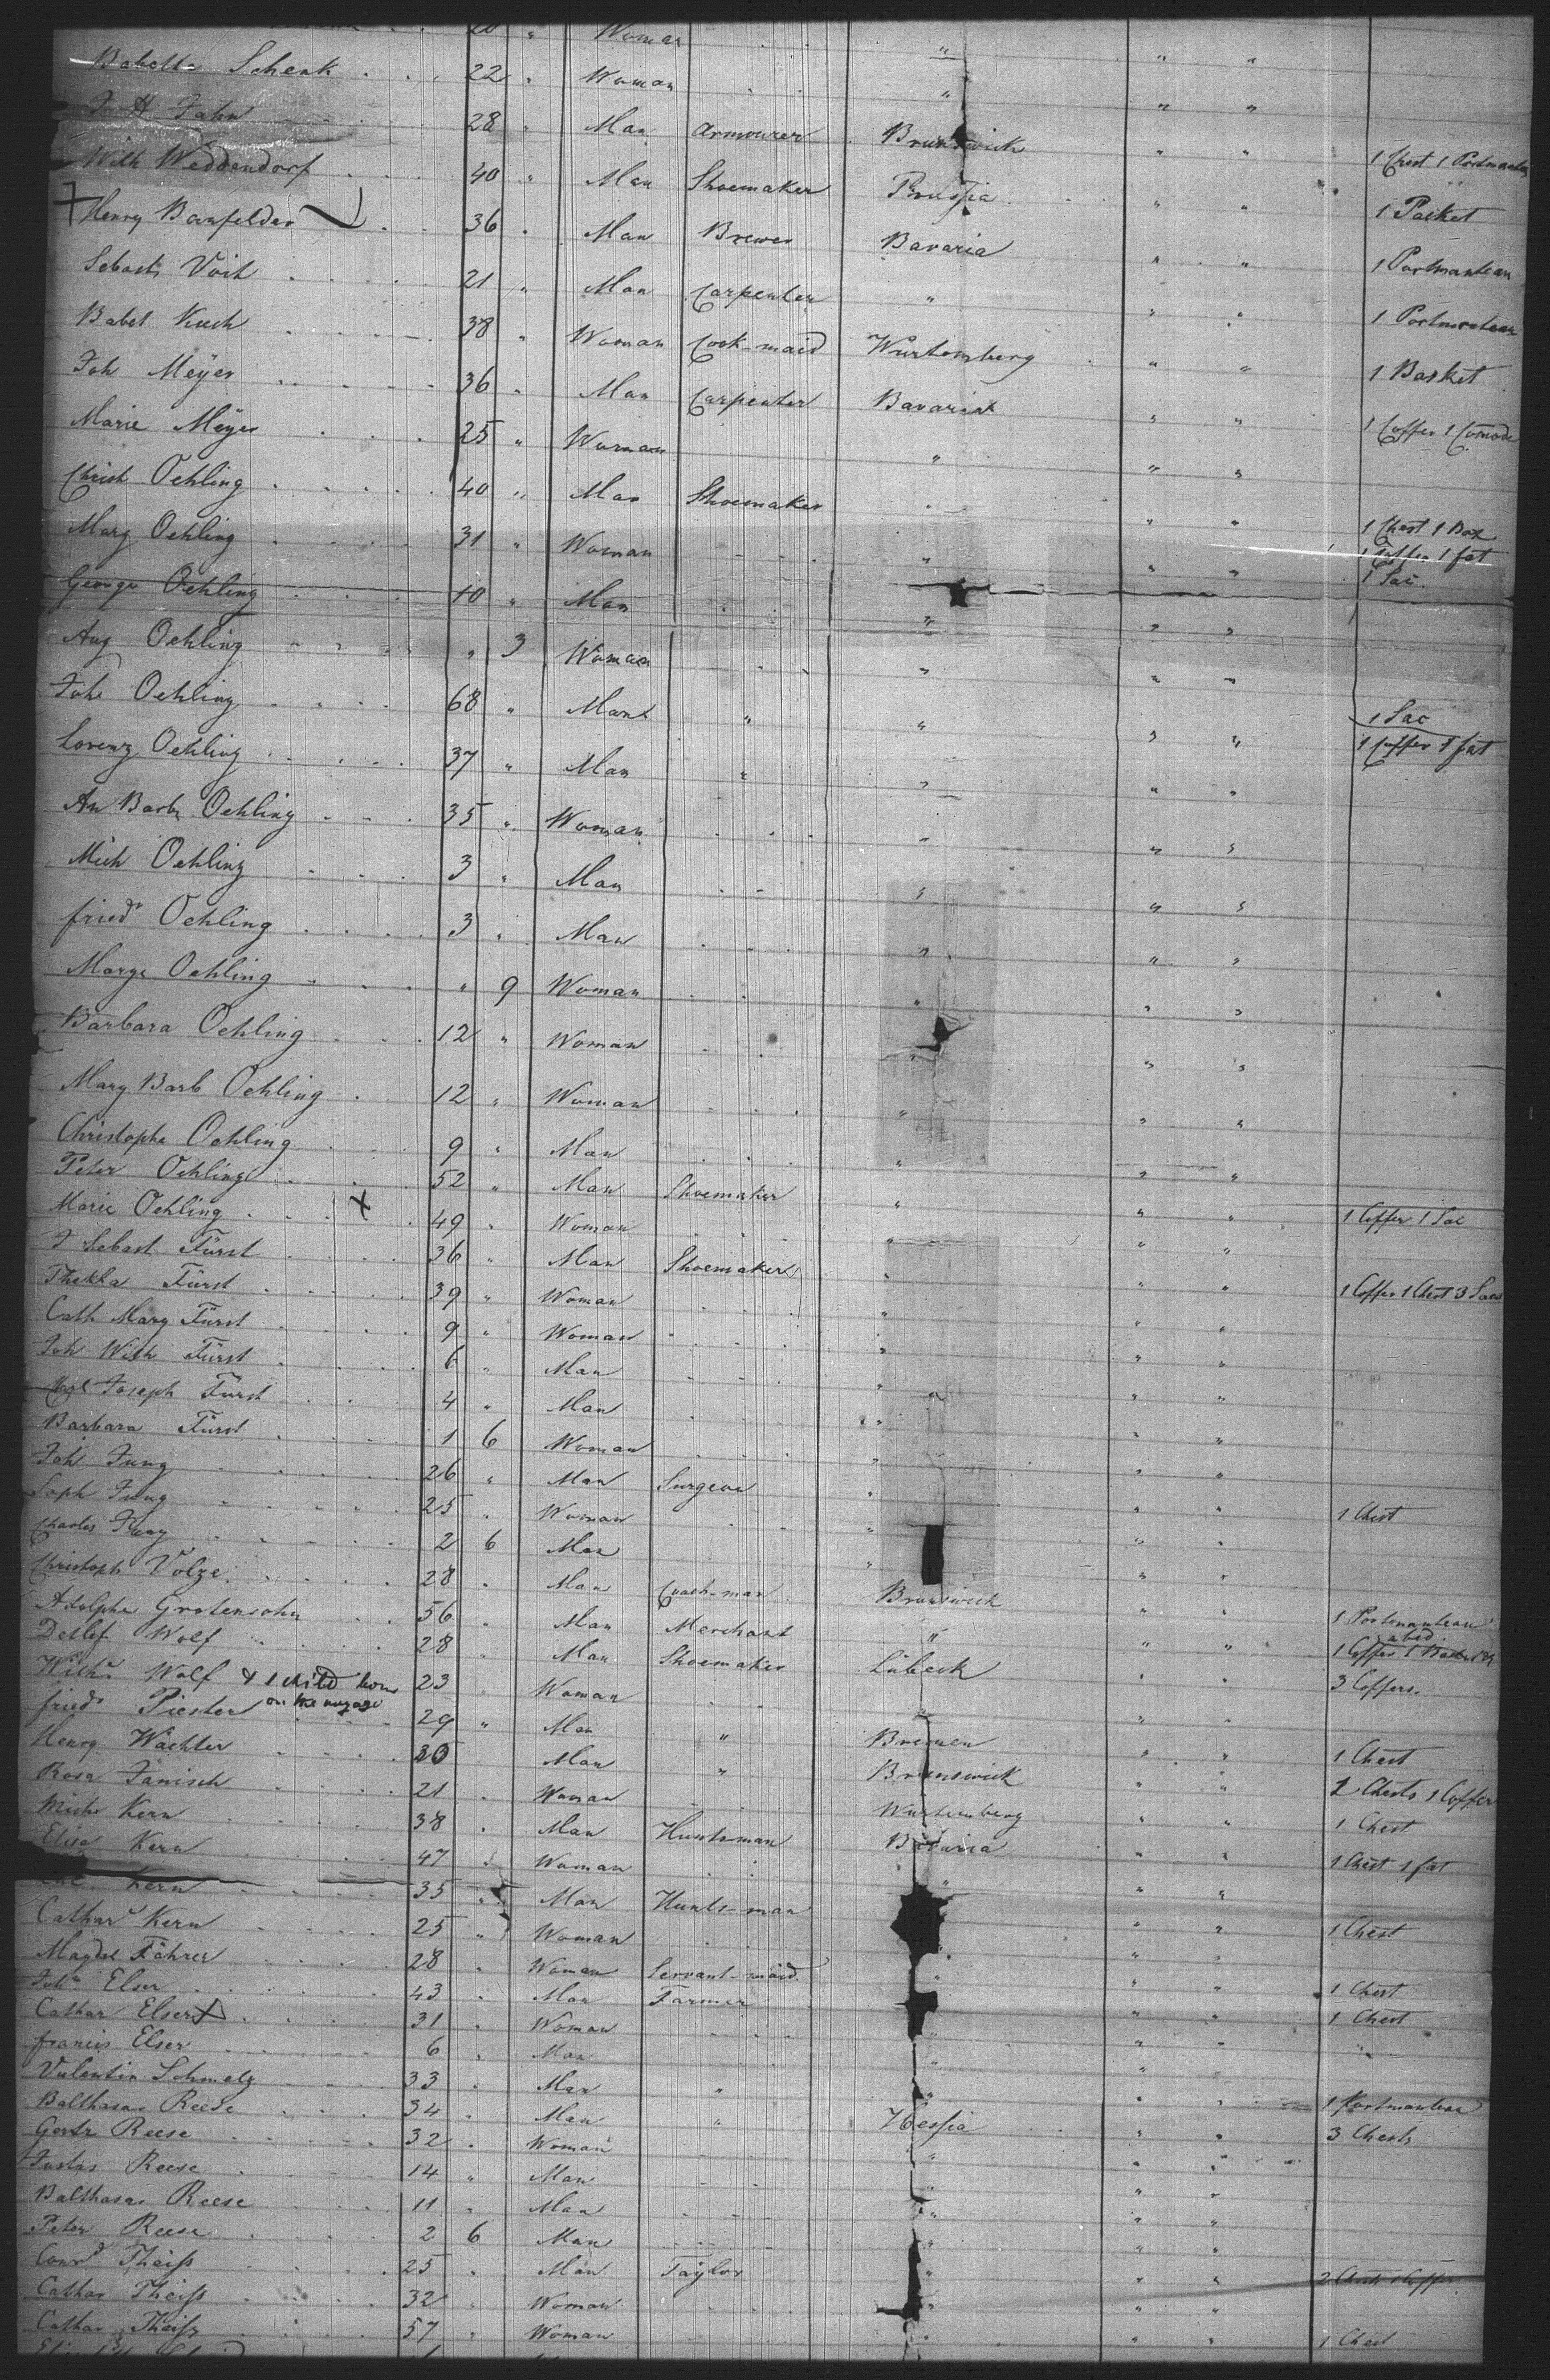 20 " Woman " " "
Babette Schenk 22 " Woman " " "
J H Jahn 28 " Man Armourer Brunswick " " 1 Chest 1 Portmanteau
Wilh Weddendorf 40 " Man Shoemaker Prussia " " 1 Packet
Henry Banfelder 36 " Man Brewer Bavaria " " 1 Portmanteau
Sebast Voit 21 " Man Carpenter " " " 1 Portmanteau
Babet Kuch 38 " Woman Cook-maid Würtemberg " " 1 Basket
Joh Meyer 36 " Man Carpenter Bavaria " " 1 Coffer 1 Comode
Marie Meyer 25 " Woman " " "
Christ Oehling 40 " Man Shoemaker " " " 1 Chest 1 Box
Marg Oehling 31 " Woman " " " 1 Coffer 1 fat
1 Sac
George Oehling 10 " Man " " "
Aug Oehling " 3 Woman " " "
Joh Oehling 68 " Man " " " " 1 Sac
Lorenz Oehling 37 " Man " " " " 1 Coffer 1 fat
An Barb Oehling 35 " Woman " " "
Mich Oehling 3 " Man " " "
fried Oehling 3 " Man " " "
Marge Oehling " 9 Woman " " "
Barbara Oehling 12 " Woman " " "
Marg Barb Oehling 12 " Woman " " "
Christophe Oehling 9 " Man " " "
Peter Oehling 52 " Man Shoemaker " " " 1 Coffer 1 Sac
Marie Oehling X 49 " Woman " " "
J Sebast Fürst 36 " Man Shoemaker " " " 1 Coffer 1 Chest 3 Sacs
Thekla Fürst 39 " Woman " " "
Cath Marg Fürst 9 " Woman " " "
Joh Wilh Fürst 6 " Man " " "
Joseph Fürst 4 " Man " " "
Barbara Fürst 1 6 Woman " " "
Joh Jung 26 " Man Surgeon " " " 1 Chest
Soph Jung 25 " Woman " " "
Charles Jung 2 6 Man " " "
Christoph Volze 28 " Man Coach-man Brunswick " " 1 Portmanteau
Adolphe Grotensohn 56 " Man Merchant " " " 1 Coffer 1 bed
Detlef Wolf 28 " Man Shoemaker Lübeck " " 3 Coffers
Wilh Wolf & 1 child born on the voyage 23 " Woman " " "
fried Piester 29 " Man " Bremen " " 1 Chest
Henry Wächter 20 " Man " Brunswick " " 2 Chests 1 Coffer
Rosa Jänisch 21 " Woman Würtemberg " " 1 Chest
Mich Kern 38 " Man Huntsman Bavaria " " 1 Chest 1 fat
Elise Kern 47 " Woman " " "
Kern 35 " Man Hunts-man " " 1 Chest
Cathar Kern 25 " Woman " " "
Magdl Föhrer 28 " Woman Servant-maid " " " 1 Chest
Joh Elser 43 " Man Farmer " " 1 Chest
Cathar Elser 31 " Woman " " "
francis Elser 6 " Man " " "
Valentin Schmelz 33 " Man " " " " 1 Portmanteau
Balthasar Reese 34 " Man " Hessia " " 3 Chests
Gertr Reese 32 " Woman " " "
Justus Reese 14 " Man " " "
Balthasar Reese 11 " Man " " "
Peter Reese 2 6 Man " " "
Conrd Theiss 25 " Man Taylor " " " 2 Chests 1 Coffer
Cathar Theiss 32 " Woman " " "
Cathar Theiss 57 " Woman " " " 1 Chest